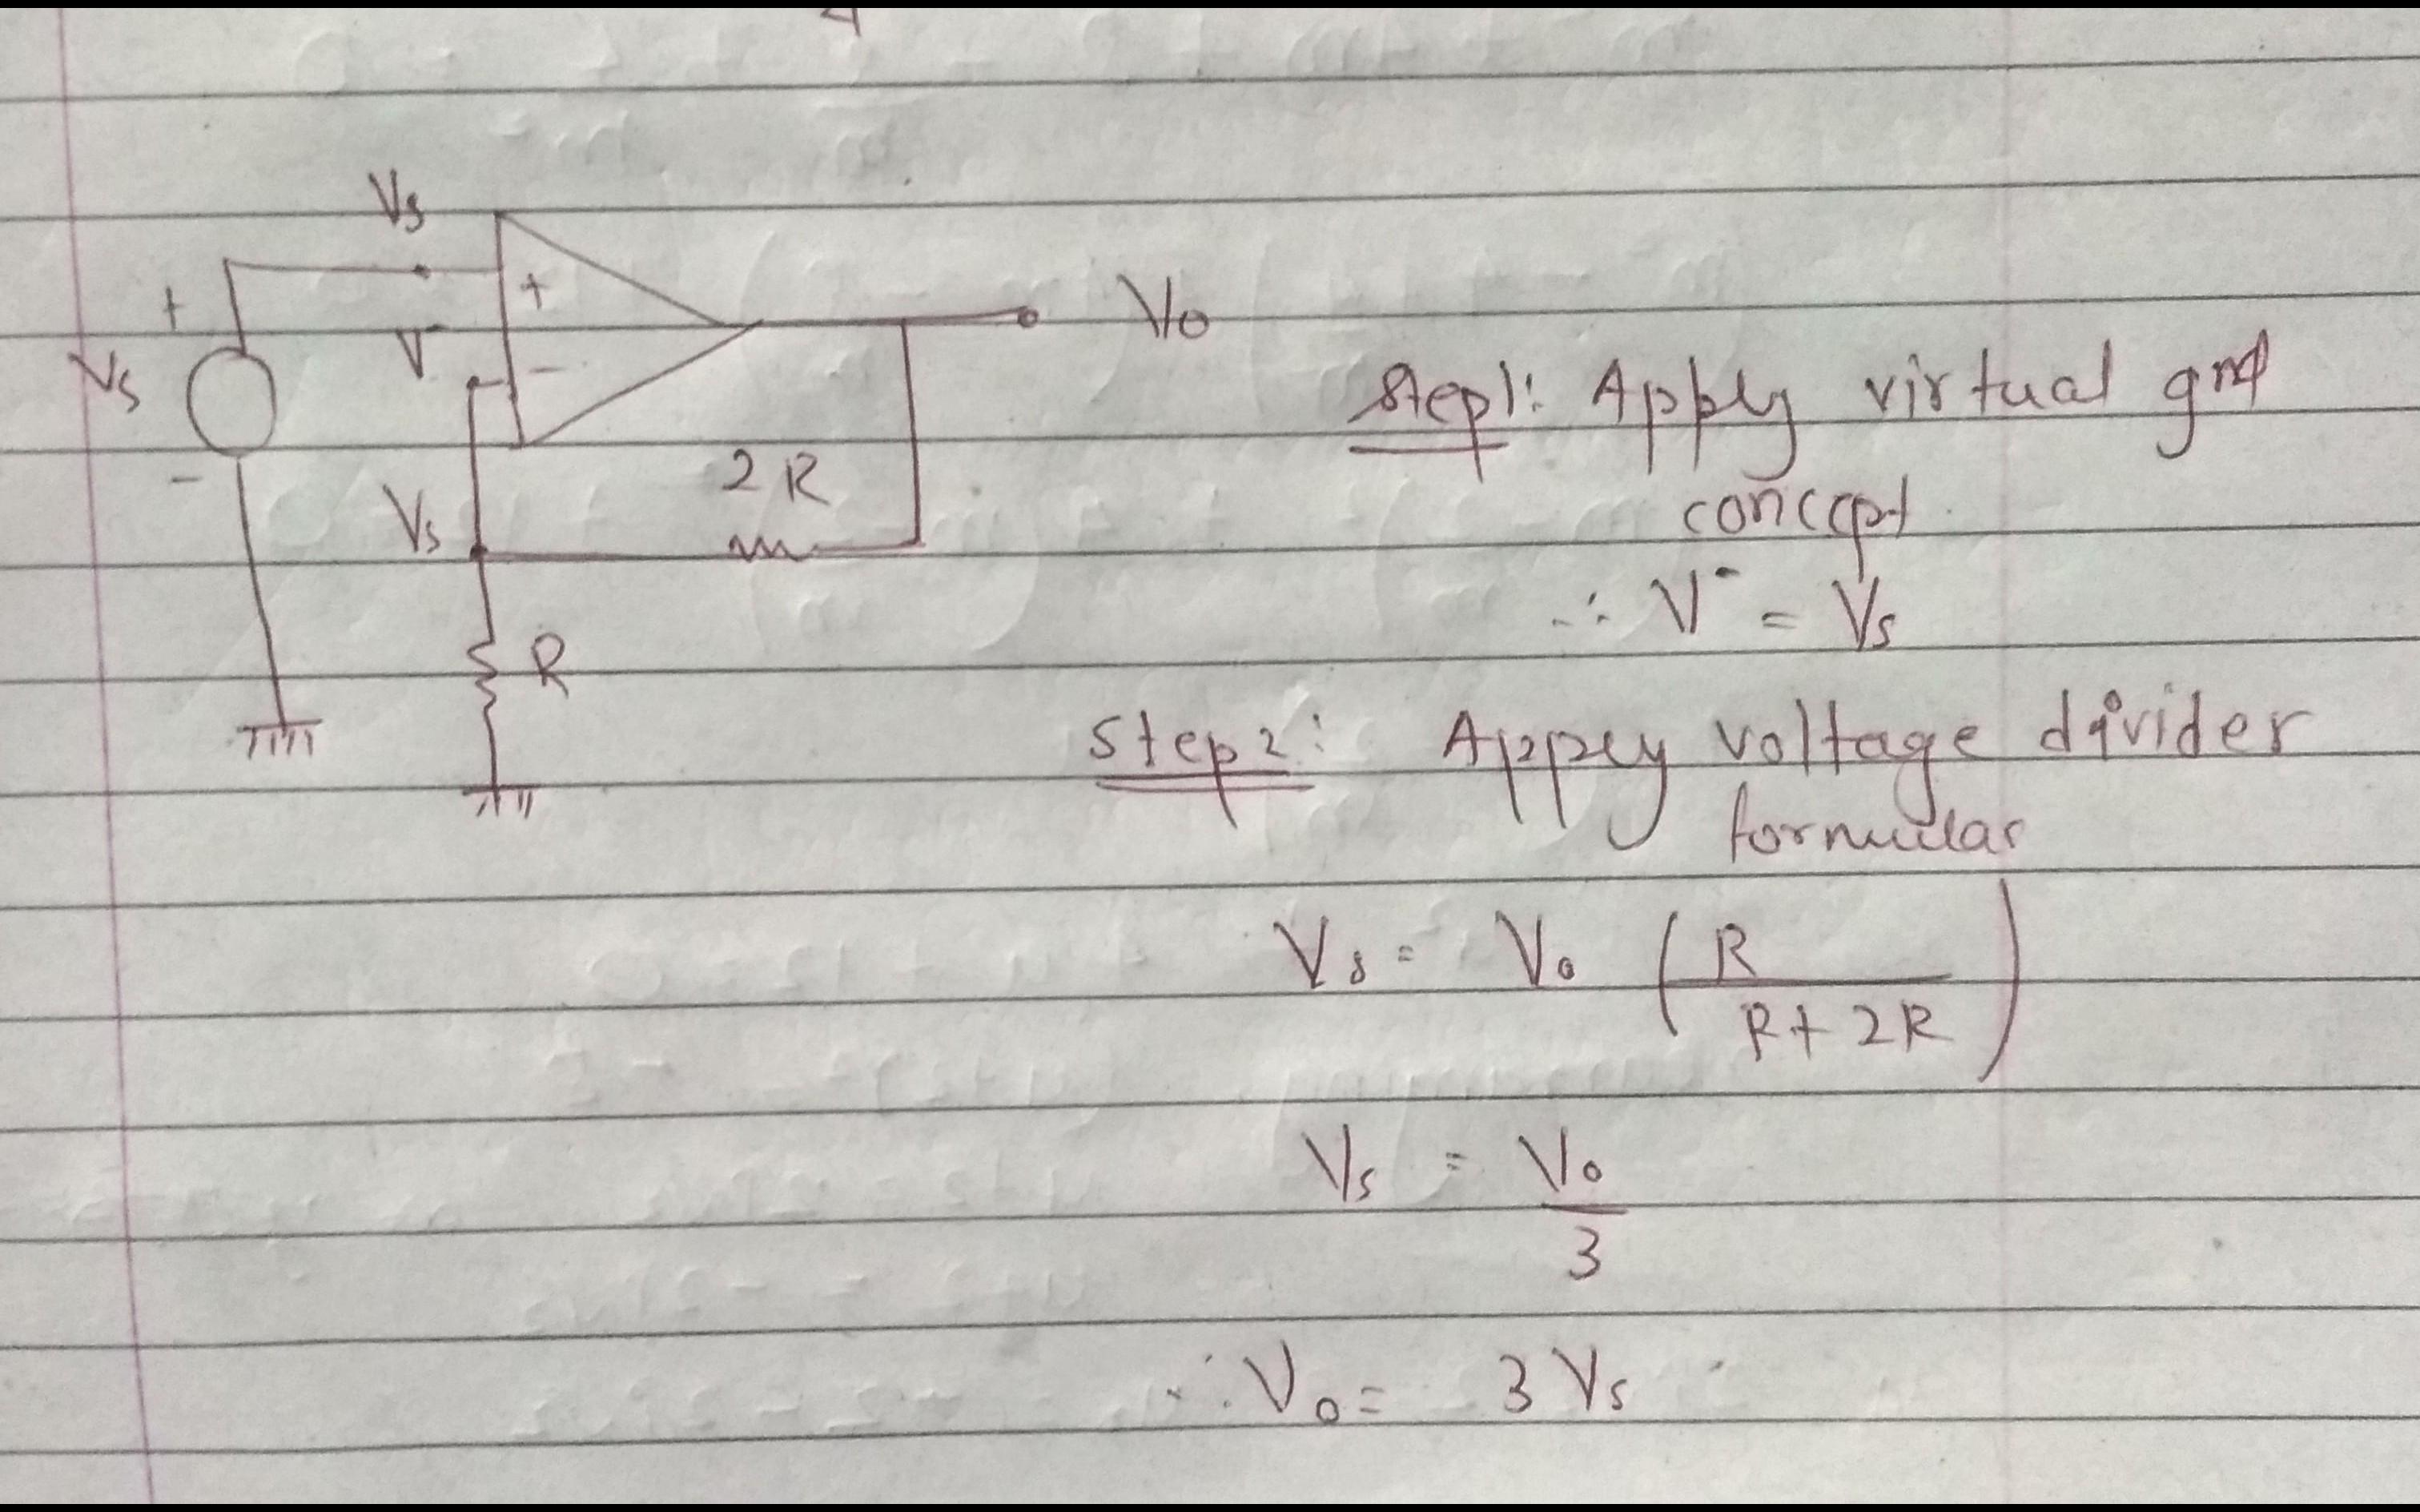 Vs
+
+
V⁻
-
Vo
Vs
-
2R
Vs
R
Step1: Apply virtual gnd
concept
∴ V⁻ = Vs
Step2: Apply voltage divider
formular
Vs = Vo (R / R+2R)
Vs = Vo / 3
∴ Vo = 3Vs